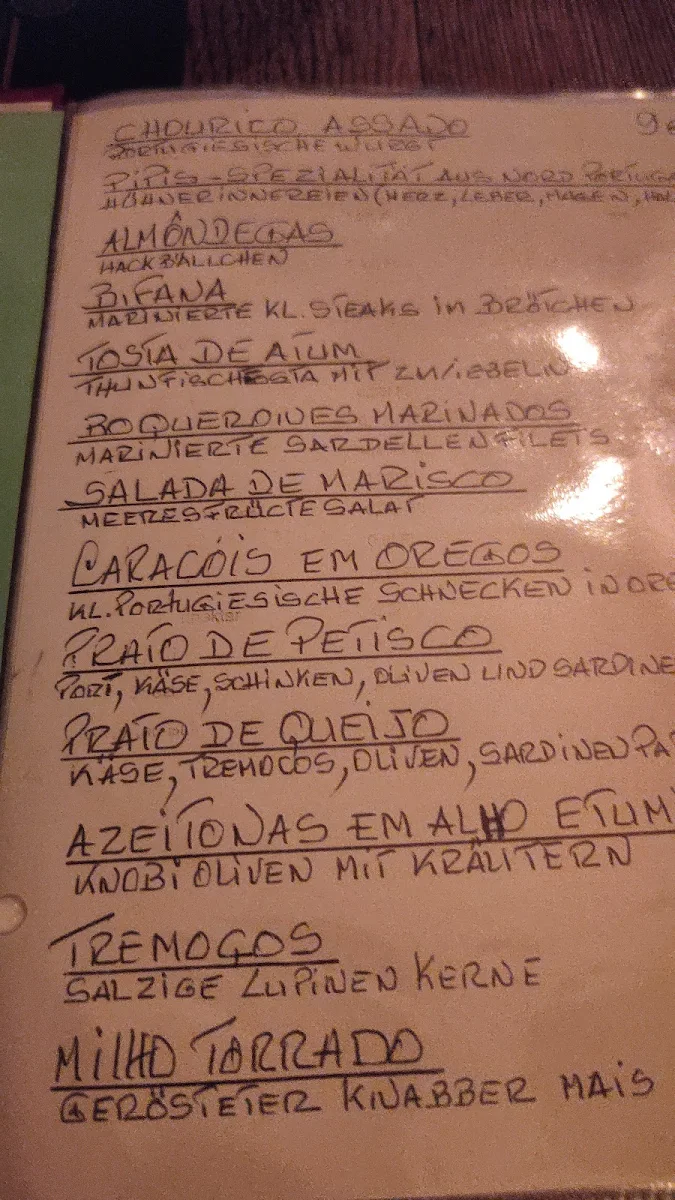 CHOURICO ASSADO 9
PORTUGIESISCHE WURST
PIPIS - SPEZIALITÄT AUS NORD PORTUGA
HÜHNERINNEREIEN (HERZ, LEBER, MAGEN,
ALMÔNDEGAS
HACKBÄLLCHEN
BIFANA
MARINIERTE KL. STEAKS IN BRÖTCHEN
TOSTA DE ATUM
THUNFISCHTOSTA MIT ZWIEBELN
BOQUERONES MARINADOS
MARINIERTE SARDELLENFILETS
SALADA DE MARISCO
MEERESFRÜCTE SALAT
CARACÓIS EM OREGOS
KL. PORTUGIESISCHE SCHNECKEN IN ORE
PRATO DE PETISCO
PORT, KÄSE, SCHINKEN, OLIVEN UND SARDINE
PRATO DE QUEIJO
KÄSE, TREMOCOS, OLIVEN, SARDINEN PA
AZEITONAS EM ALHO E TUM
KNOBI OLIVEN MIT KRÄUTERN
TREMOÇOS
SALZIGE LUPINEN KERNE
MILHO TORRADO
GERÖSTETER KNABBER MAIS